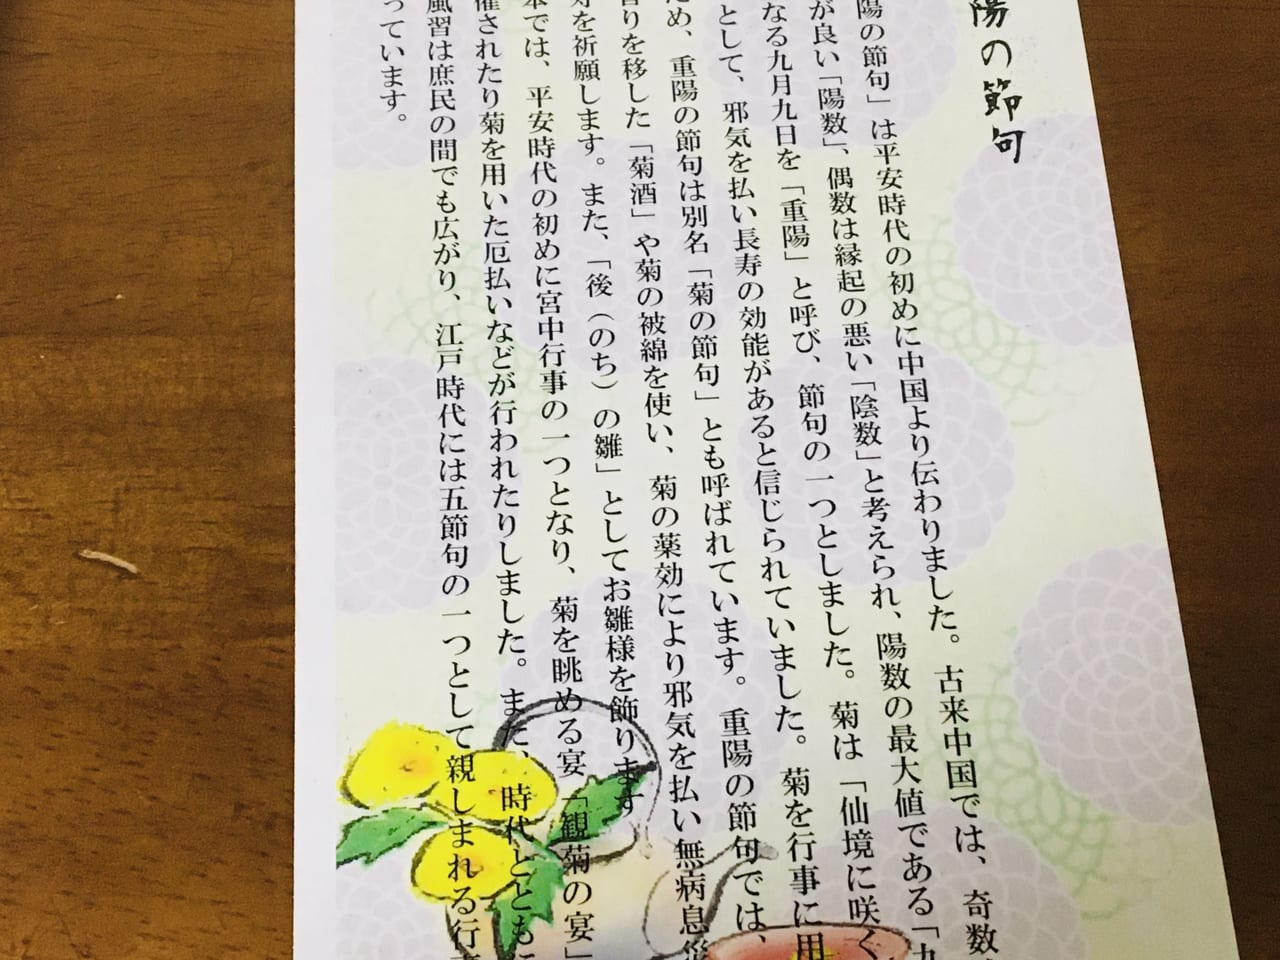 陽の節句
陽の節句」は平安時代の初めに中国より伝わりました。古来中国では、奇数
が良い「陽数」、偶数は縁起の悪い「陰数」と考えられ、陽数の最大値である「九
なる九月九日を「重陽」と呼び、節句の一つとしました。菊は「仙境に咲く
として、邪気を払い長寿の効能があると信じられていました。菊を行事に用
ため、重陽の節句は別名「菊の節句」とも呼ばれています。重陽の節句では、
香りを移した「菊酒」や菊の被綿を使い、菊の薬効により邪気を払い無病息災
寿を祈願します。また、「後（のち）の雛」としてお雛様を飾ります
本では、平安時代の初めに宮中行事の一つとなり、菊を眺める宴「観菊の宴」
催されたり菊を用いた厄払いなどが行われたりしました。また、時代とともに
風習は庶民の間でも広がり、江戸時代には五節句の一つとして親しまれる行事
っています。